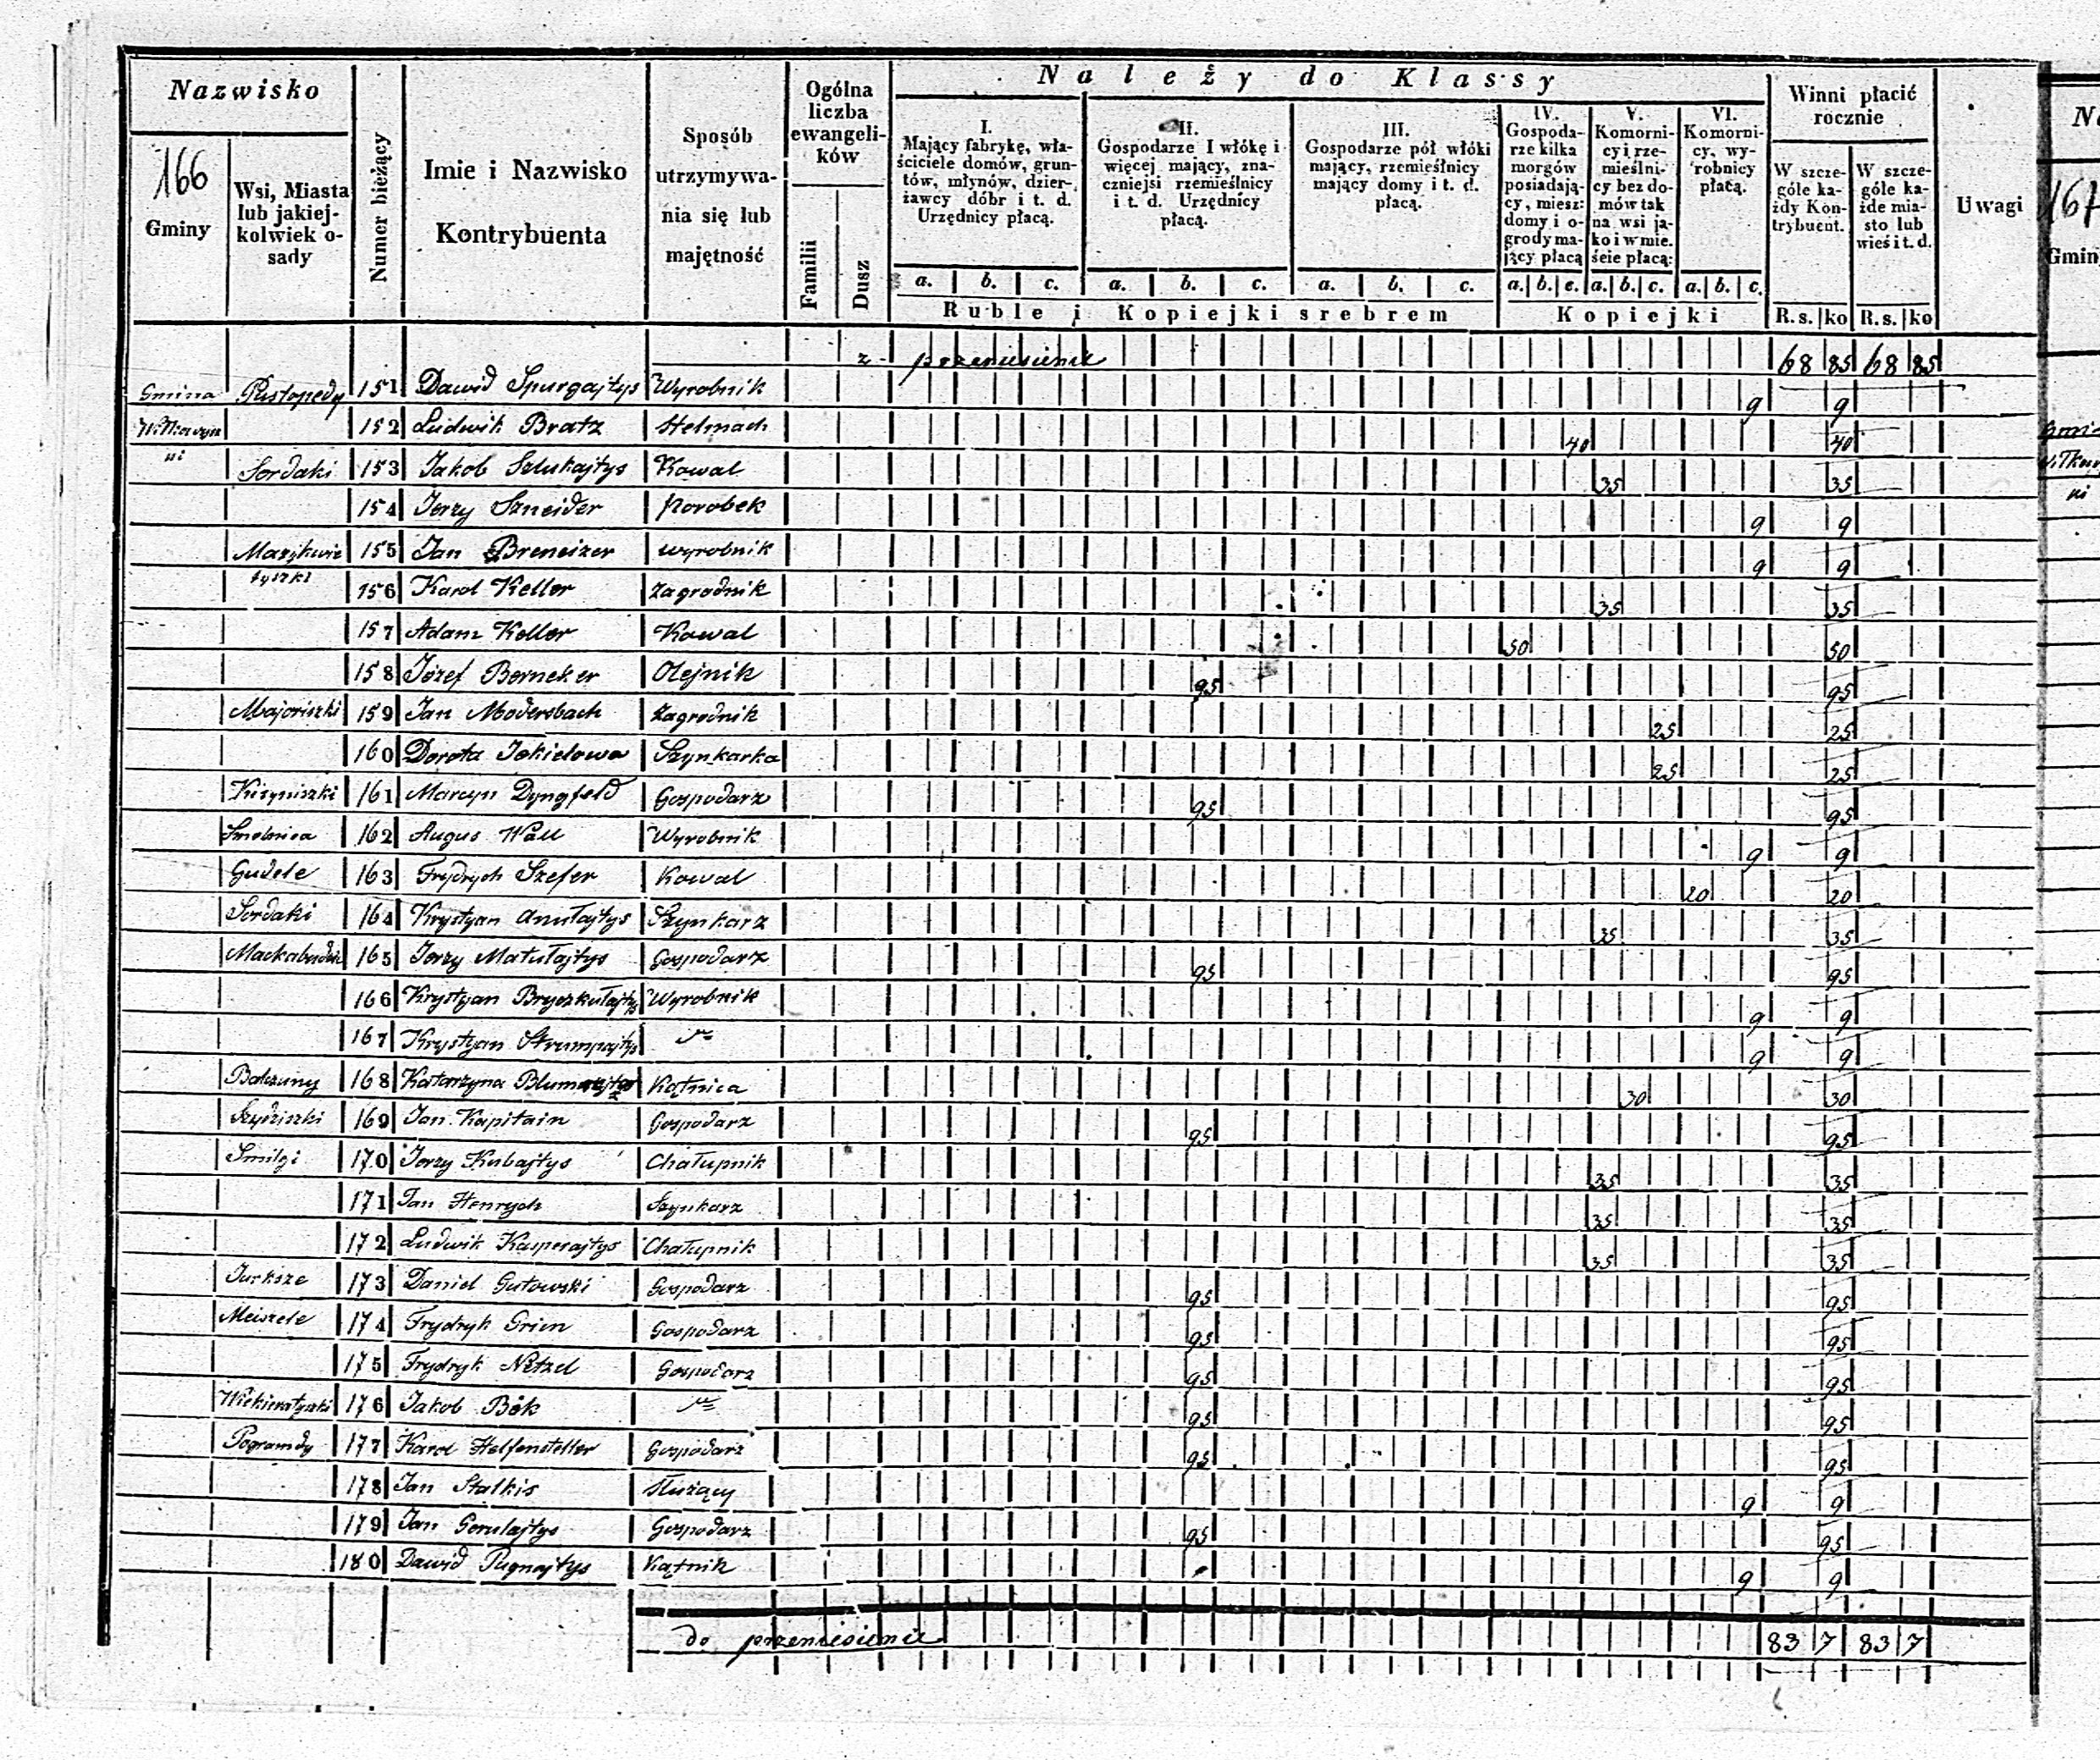 Nazwisko
166
Gminy
Wsi, Miasta lub jakiej-kolwiek o-sady
Numer bieżący
Imie i Nazwisko Kontrybuenta
Sposób utrzymywa-nia się lub majętność
Ogólna liczba ewangeli-ków
Familii
Dusz
Należy do Klassy
I. Mający fabrykę, wła-ściciele domów, grun-tów, młynów, dzier-żawcy dóbr i t. d. Urzędnicy płacą.
II. Gospodarze I włókę i więcej mający, zna-czniejsi rzemieślnicy i t. d. Urzędnicy płacą.
III. Gospodarze pół włóki mający, rzemieślnicy mający domy i t. d. płacą.
IV. Gospoda-rze kilka morgów posiadają-cy, miesz: domy i o-grody ma-jący płacą
V. Komorni-cy i rze-mieślni-cy bez do-mów tak na wsi ja-ko i w mie.ście płacą:
VI. Komorni-cy, wy-robnicy płacą.
Winni płacić rocznie
W szcze-góle ka-żdy Kon-trybuent.
W szcze-góle ka-żde mia-sto lub wieś i t. d.
Uwagi
a. b. c. a. b. c. a. b. c. a. b. c. a. b. c. a. b. c.
Ruble i Kopiejki srebrem
Kopiejki
R. s. ko R. s. ko
z przeniesienie 68 85 68 85
Gmina Pustopedy 151 Dawid Spurgajtys Wyrobnik 9 9
152 Ludwik Bratz Stelmach 40 40
Sordaki 153 Jakob Szlukajtys Kowal 35 35
154 Jerzy Szneider Parobek 9 9
155 Jan Breneizer wyrobnik 9 9
156 Karol Keller Zagrodnik 35 35
157 Adam Keller Kowal 50 50
158 Józef Berneker Olejnik 95 95
Majoriszki 159 Jan Modersbach Zagrodnik 25 25
160 Dorota Jokielowa Szynkarka 25 25
161 Marcyn Dyngfeld Gospodarz 95 95
Smolnica 162 Augus Wall Wyrobnik 9 9
Gudele 163 Frydrych Szefer Kowal 20 20
Sordaki 164 Krystyan Anułajtys Szynkarz 35 35
165 Jerzy Matułajtys Gospodarz 95 95
166 Krystyan Bryszkułajtys Wyrobnik 9 9
167 Krystyan Strumpajtys 9 9
168 Katarzyna Kątnica 30 30
169 Jan Kapitain Gospodarz 95 95
Smilgi 170 Jerzy Kubajtys Chałupnik 35 35
171 Jan Henrych Szynkarz 35 35
172 Ludwik Kasperajtys Chałupnik 35 35
Jurksze 173 Daniel Gutowski Gospodarz 95 95
Meiszele 174 Frydryk Grien Gospodarz 95 95
175 Frydryk Netzel Gospodarz 95 95
176 Jakob Bök 95 95
Pogramdy 177 Karol Helfensteller Gospodarz 95 95
178 Jan Stalkis Służący 9 9
179 Jan Gerulajtys Gospodarz 95 95
180 Dawid Pugnajtys Kątnik 9 9
do przeniesienie 83 7 83 7